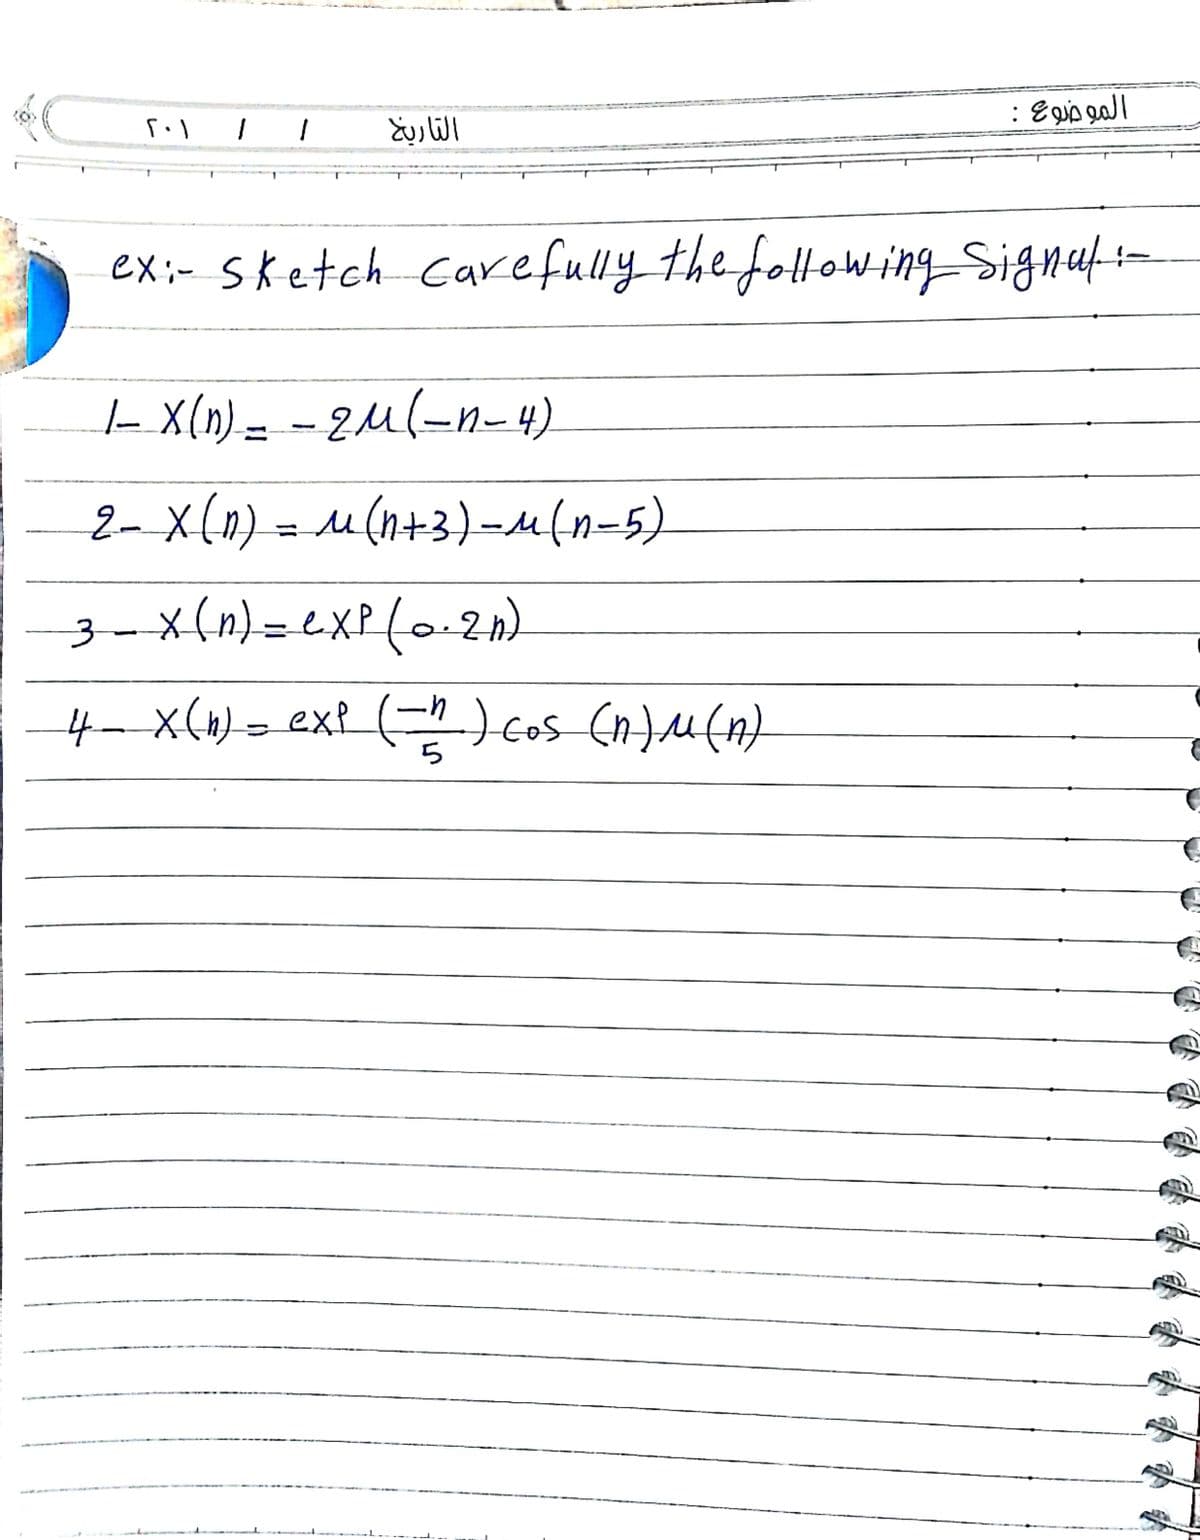 الموضوع :
التاريخ / / ٢٠١
ex:- sketch carefully the following signal :-
1- X(n) = -2u(-n-4)
2- X(n) = u(n+3)-u(n-5)
3- X(n) = exp(0.2n)
4- X(n) = exp(-n/5) cos(n)u(n)